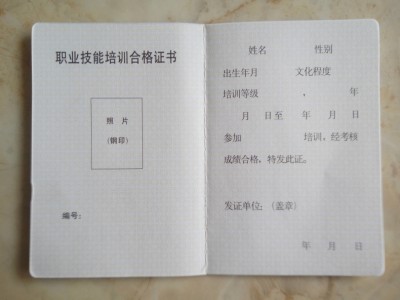 职业技能培训合格证书
照 片
(钢印)
编号：
姓名 性别
出生年月 文化程度
培训等级 ， 年
月 日至 年 月 日
参加 培训，经考核
成绩合格，特发此证。
发证单位：（盖章）
年 月 日